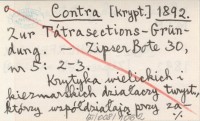 Contra [krypt.] 1892.
Zur Tátrasections-Grün-
dung. — Zipser Bote 30,
nr 5: 2-3.
Krytyka wielickich i
kiezmarskich działaczy turyst.,
którzy współdziałają przy zał.